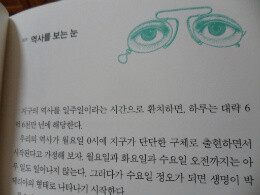 역사를 보는 눈
지구의 역사를 일주일이라는 시간으로 환치하면, 하루는 대략 6
억 6천만 년에 해당한다.
우리의 역사가 월요일 0시에 지구가 단단한 구체로 출현하면서
시작된다고 가정해 보자. 월요일과 화요일과 수요일 오전까지는 아
무 일도 일어나지 않는다. 그러다가 수요일 정오가 되면 생명이 박
테리아의 형태로 나타나기 시작한다.